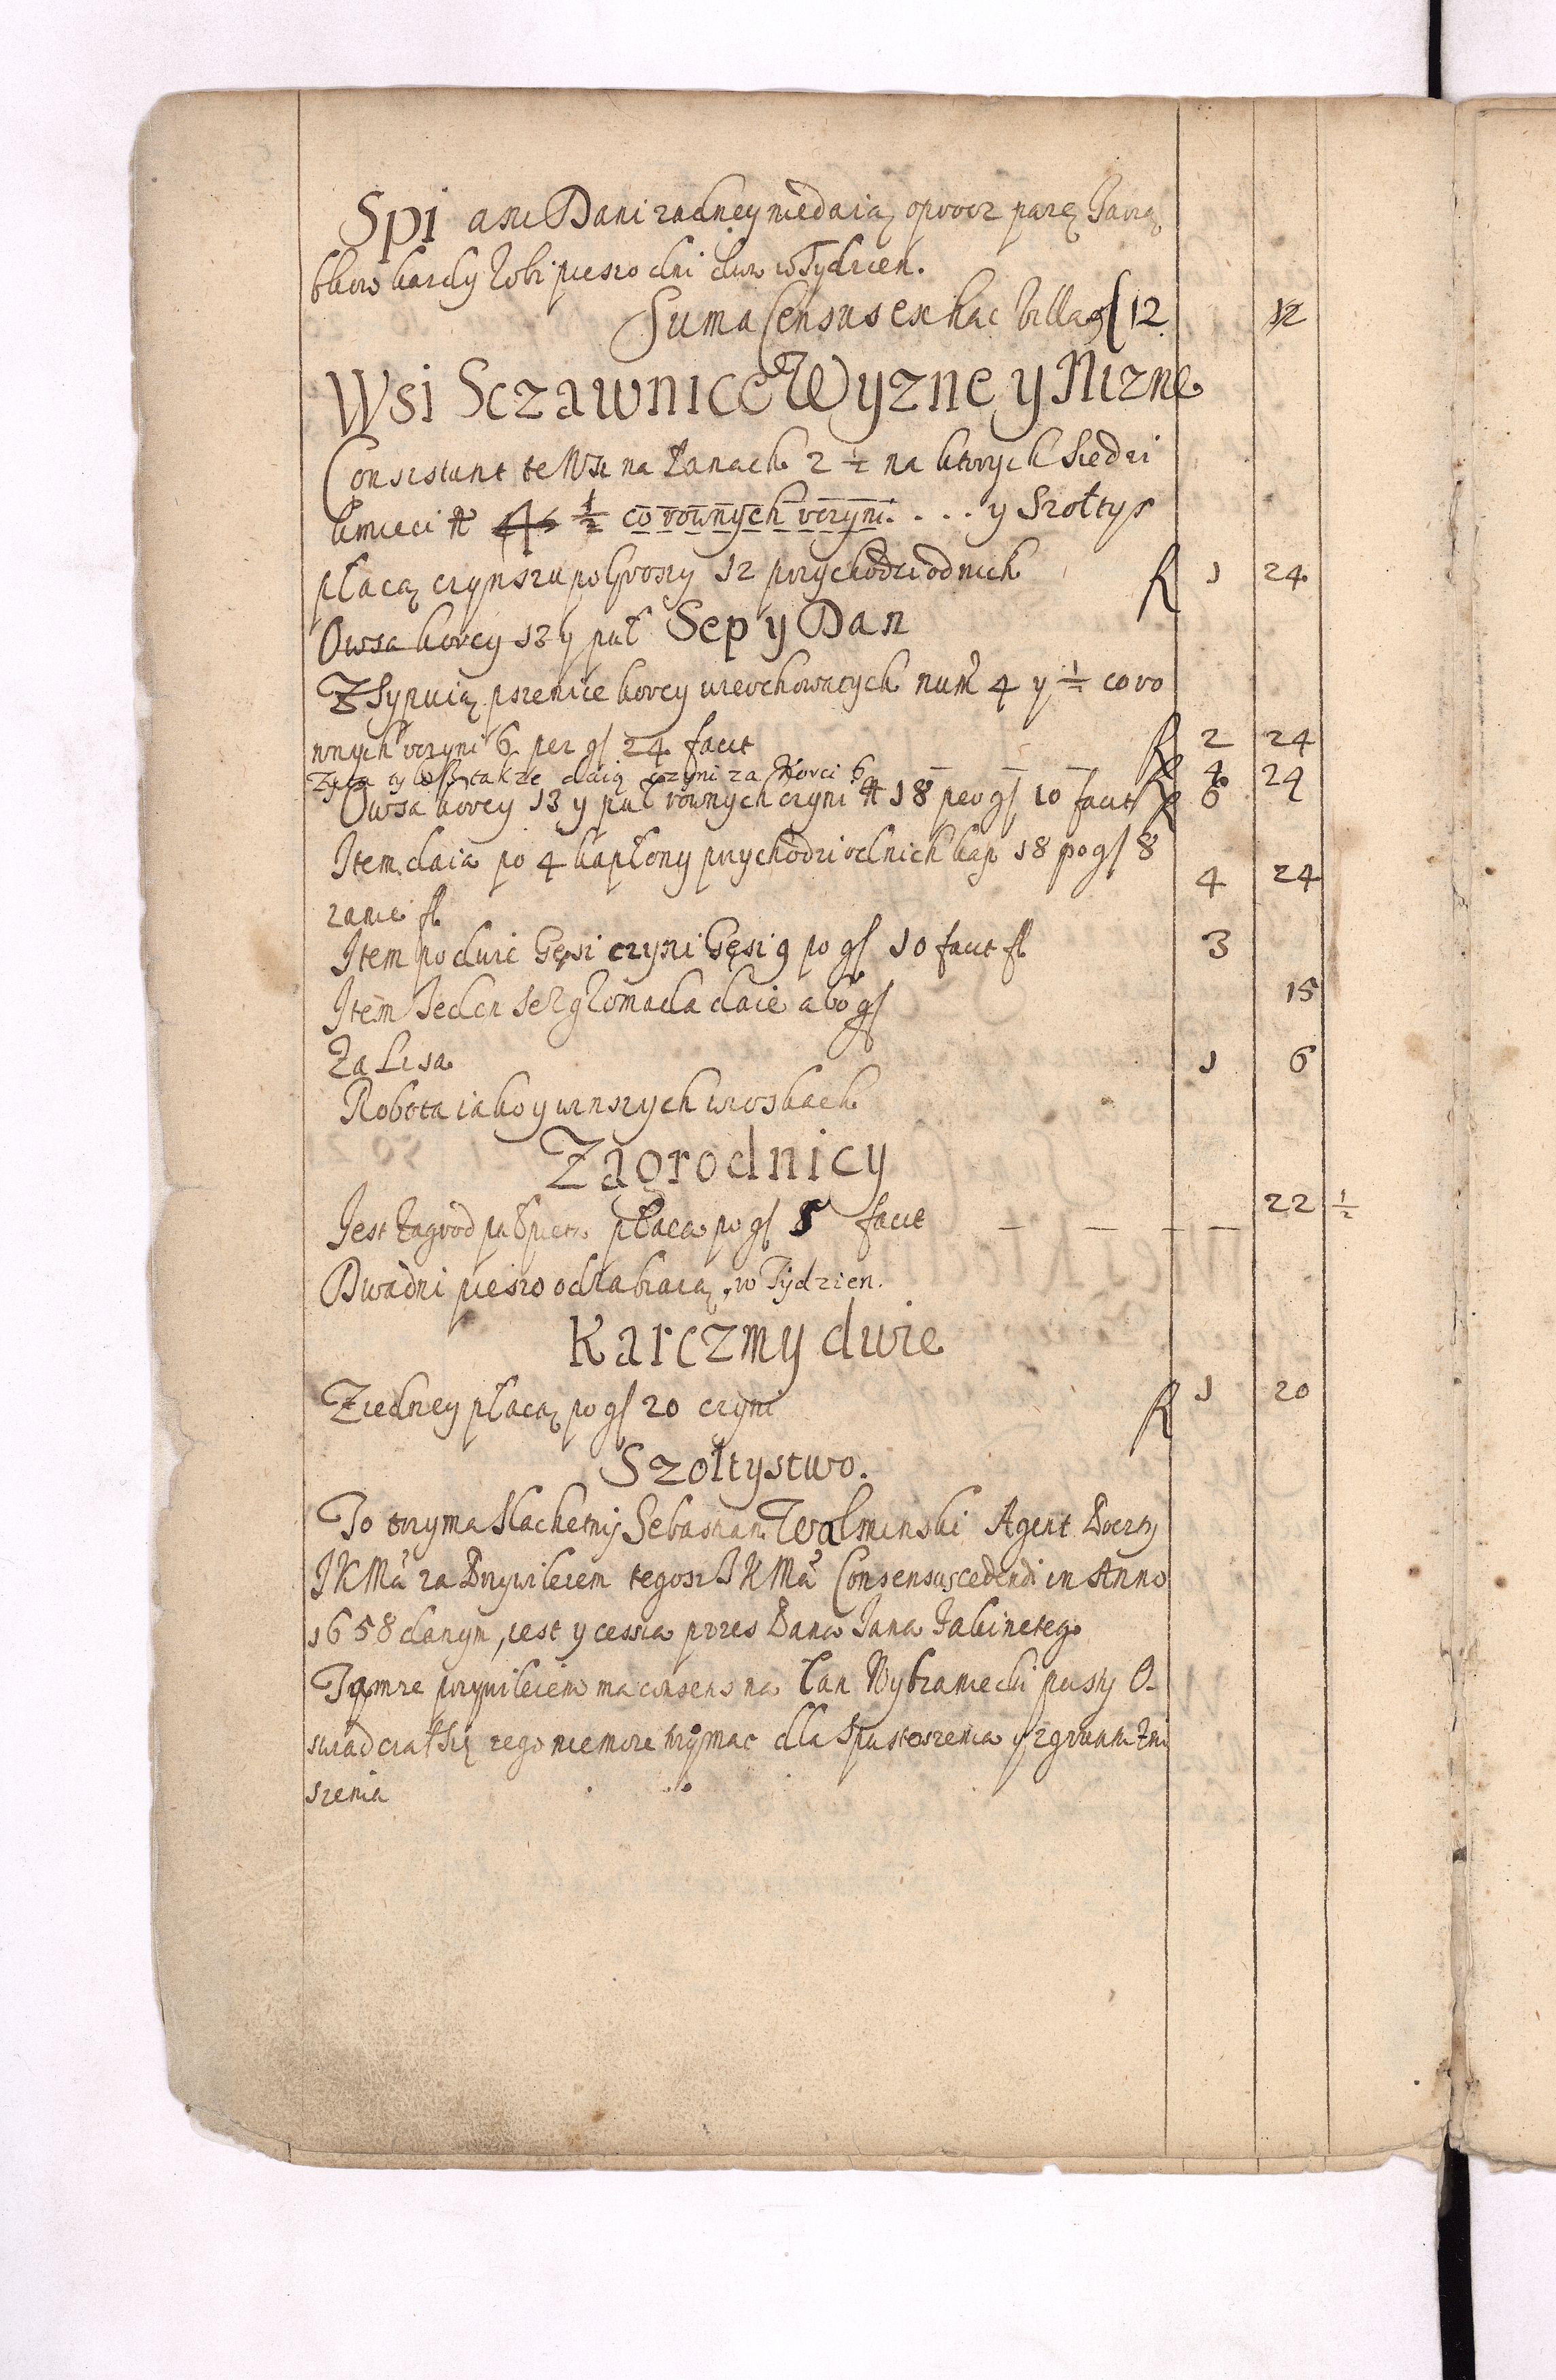 Spi ani Dani zadney niedaią oprocz parę Jarzą
bkow kazdy Robi pieszo dni dwa w Tydzien.
Suma Census ex hac Villa gſ 12 12
Wsi Sczawnice Wyzne y Nizne
Consistunt te Wsi na Łanach 2 ½ na ktorych Siedzi
kmieci № 4 ½ co rownych vczyni. . . . y Szołtys
płacą czynszu po Groszy 12 przychodzi od nich fl 1 24
Owsa korcy 13 y puł Sep y Dan
Zsypuią pszenice korcy wierzchowatych num 4 y ½ co ro
wnych vczyni 6 per gſ 24 facit fl 2 24
Zyta tylesz także daią czyni za Korci 6 fl 4 24
Owsa korcy 13 y puł rownych czyni № 18 per gſ 10 facit fl 6
Item daia po 4 kapłony przychodzi od nich kap 18 po gſ 8
zanie fl 4 24
Item po dwie Gęsi czyni Gęsi 9 po gſ 10 facit fl 3
Item Jeden Ser gromada daie abo gſ 15
Za Lisa 1 6
Robota iako y w inszych wioskach
Zagrodnicy
Jest Zagrod puł piętu płaca po gſ 5 facit 22 ½
Dwa dni pieszo odrabiaią w Tydzien.
Karczmy dwie
Z iedney płacą po gſ 20 czyni fl 1 20
Szołtystwo.
To trzyma Slachetnÿ Sebastian Wolminski Agent
JKMći za Przywileiem tegosz JKMći Consensus cedendi in Anno
1658 danym, iest y cessia przes Pana Jana
Tąmze przywileiem ma consens na Łan Wybraniecki pusty O.
swiadczał Się zego niemoze trzymac dla Spustoszenia y zgruntu Zni
szenia